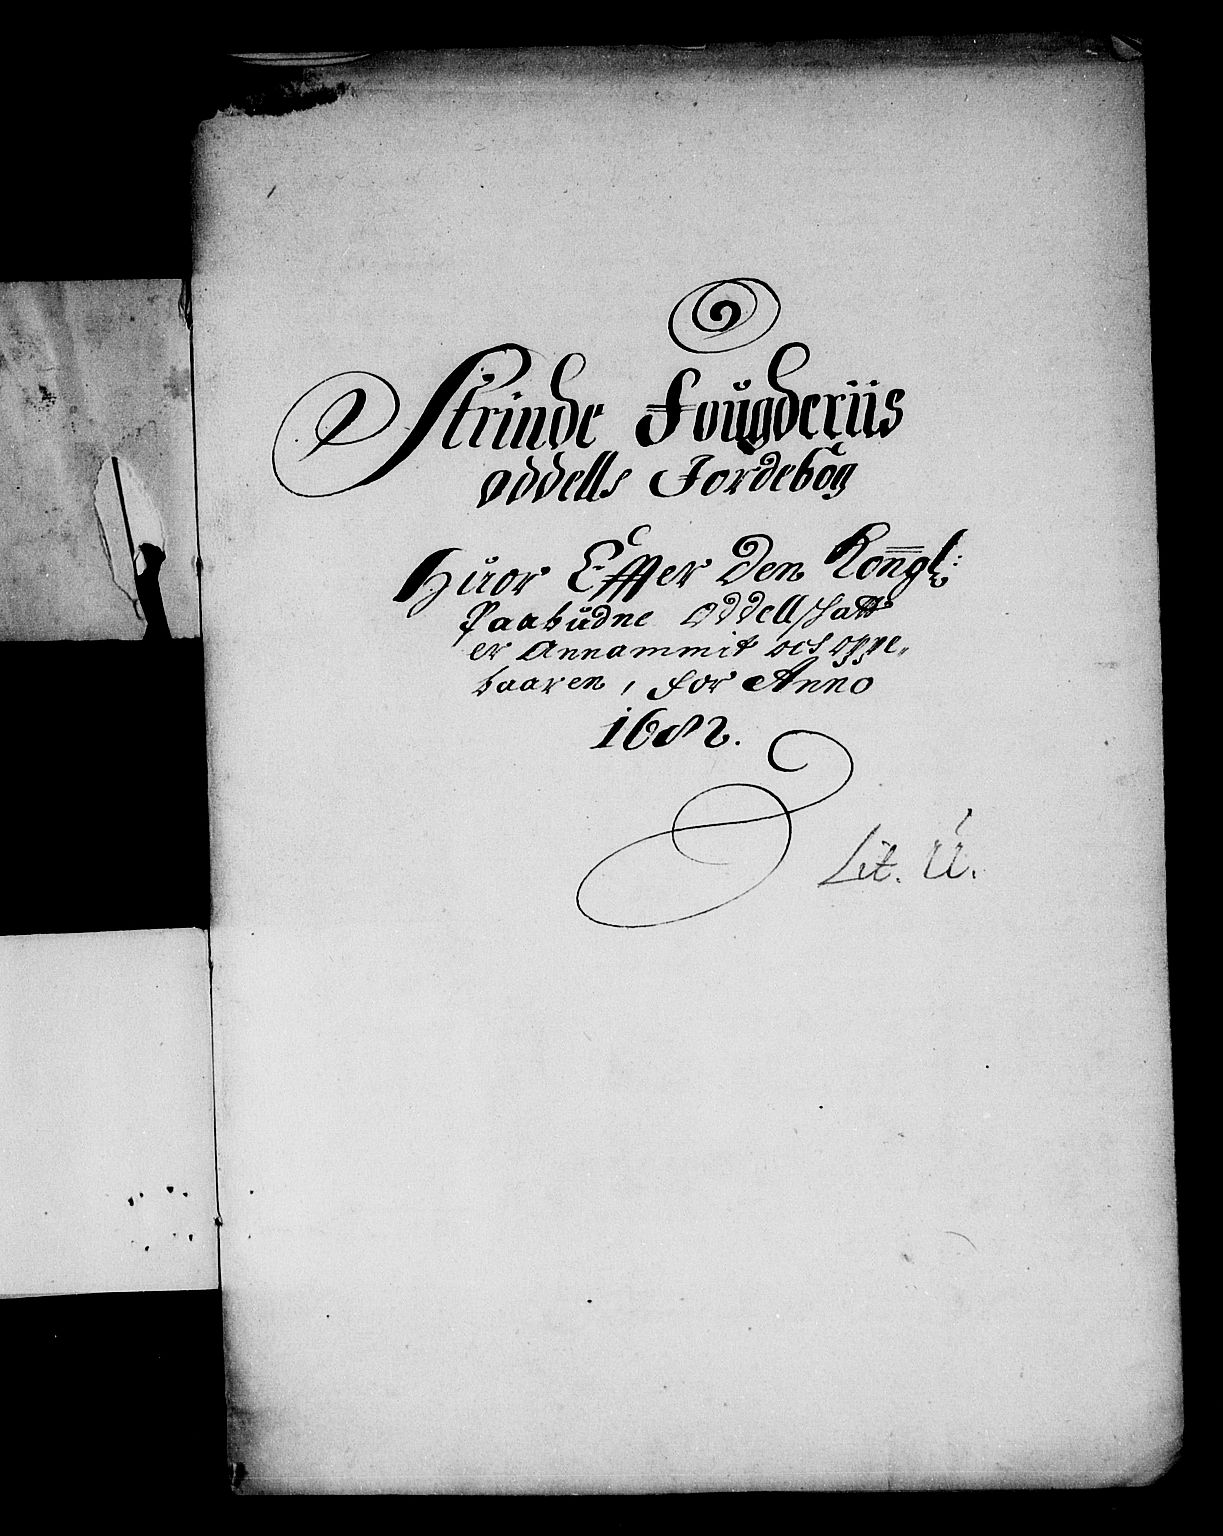 Strinde Foŭgderiis
Oddells Jordebog
Huor Effter Den Kongl:
Paabŭdne Oddell Skatt
er Annammit och oppe„
baaren, for Anno
1682.
Lit. U.